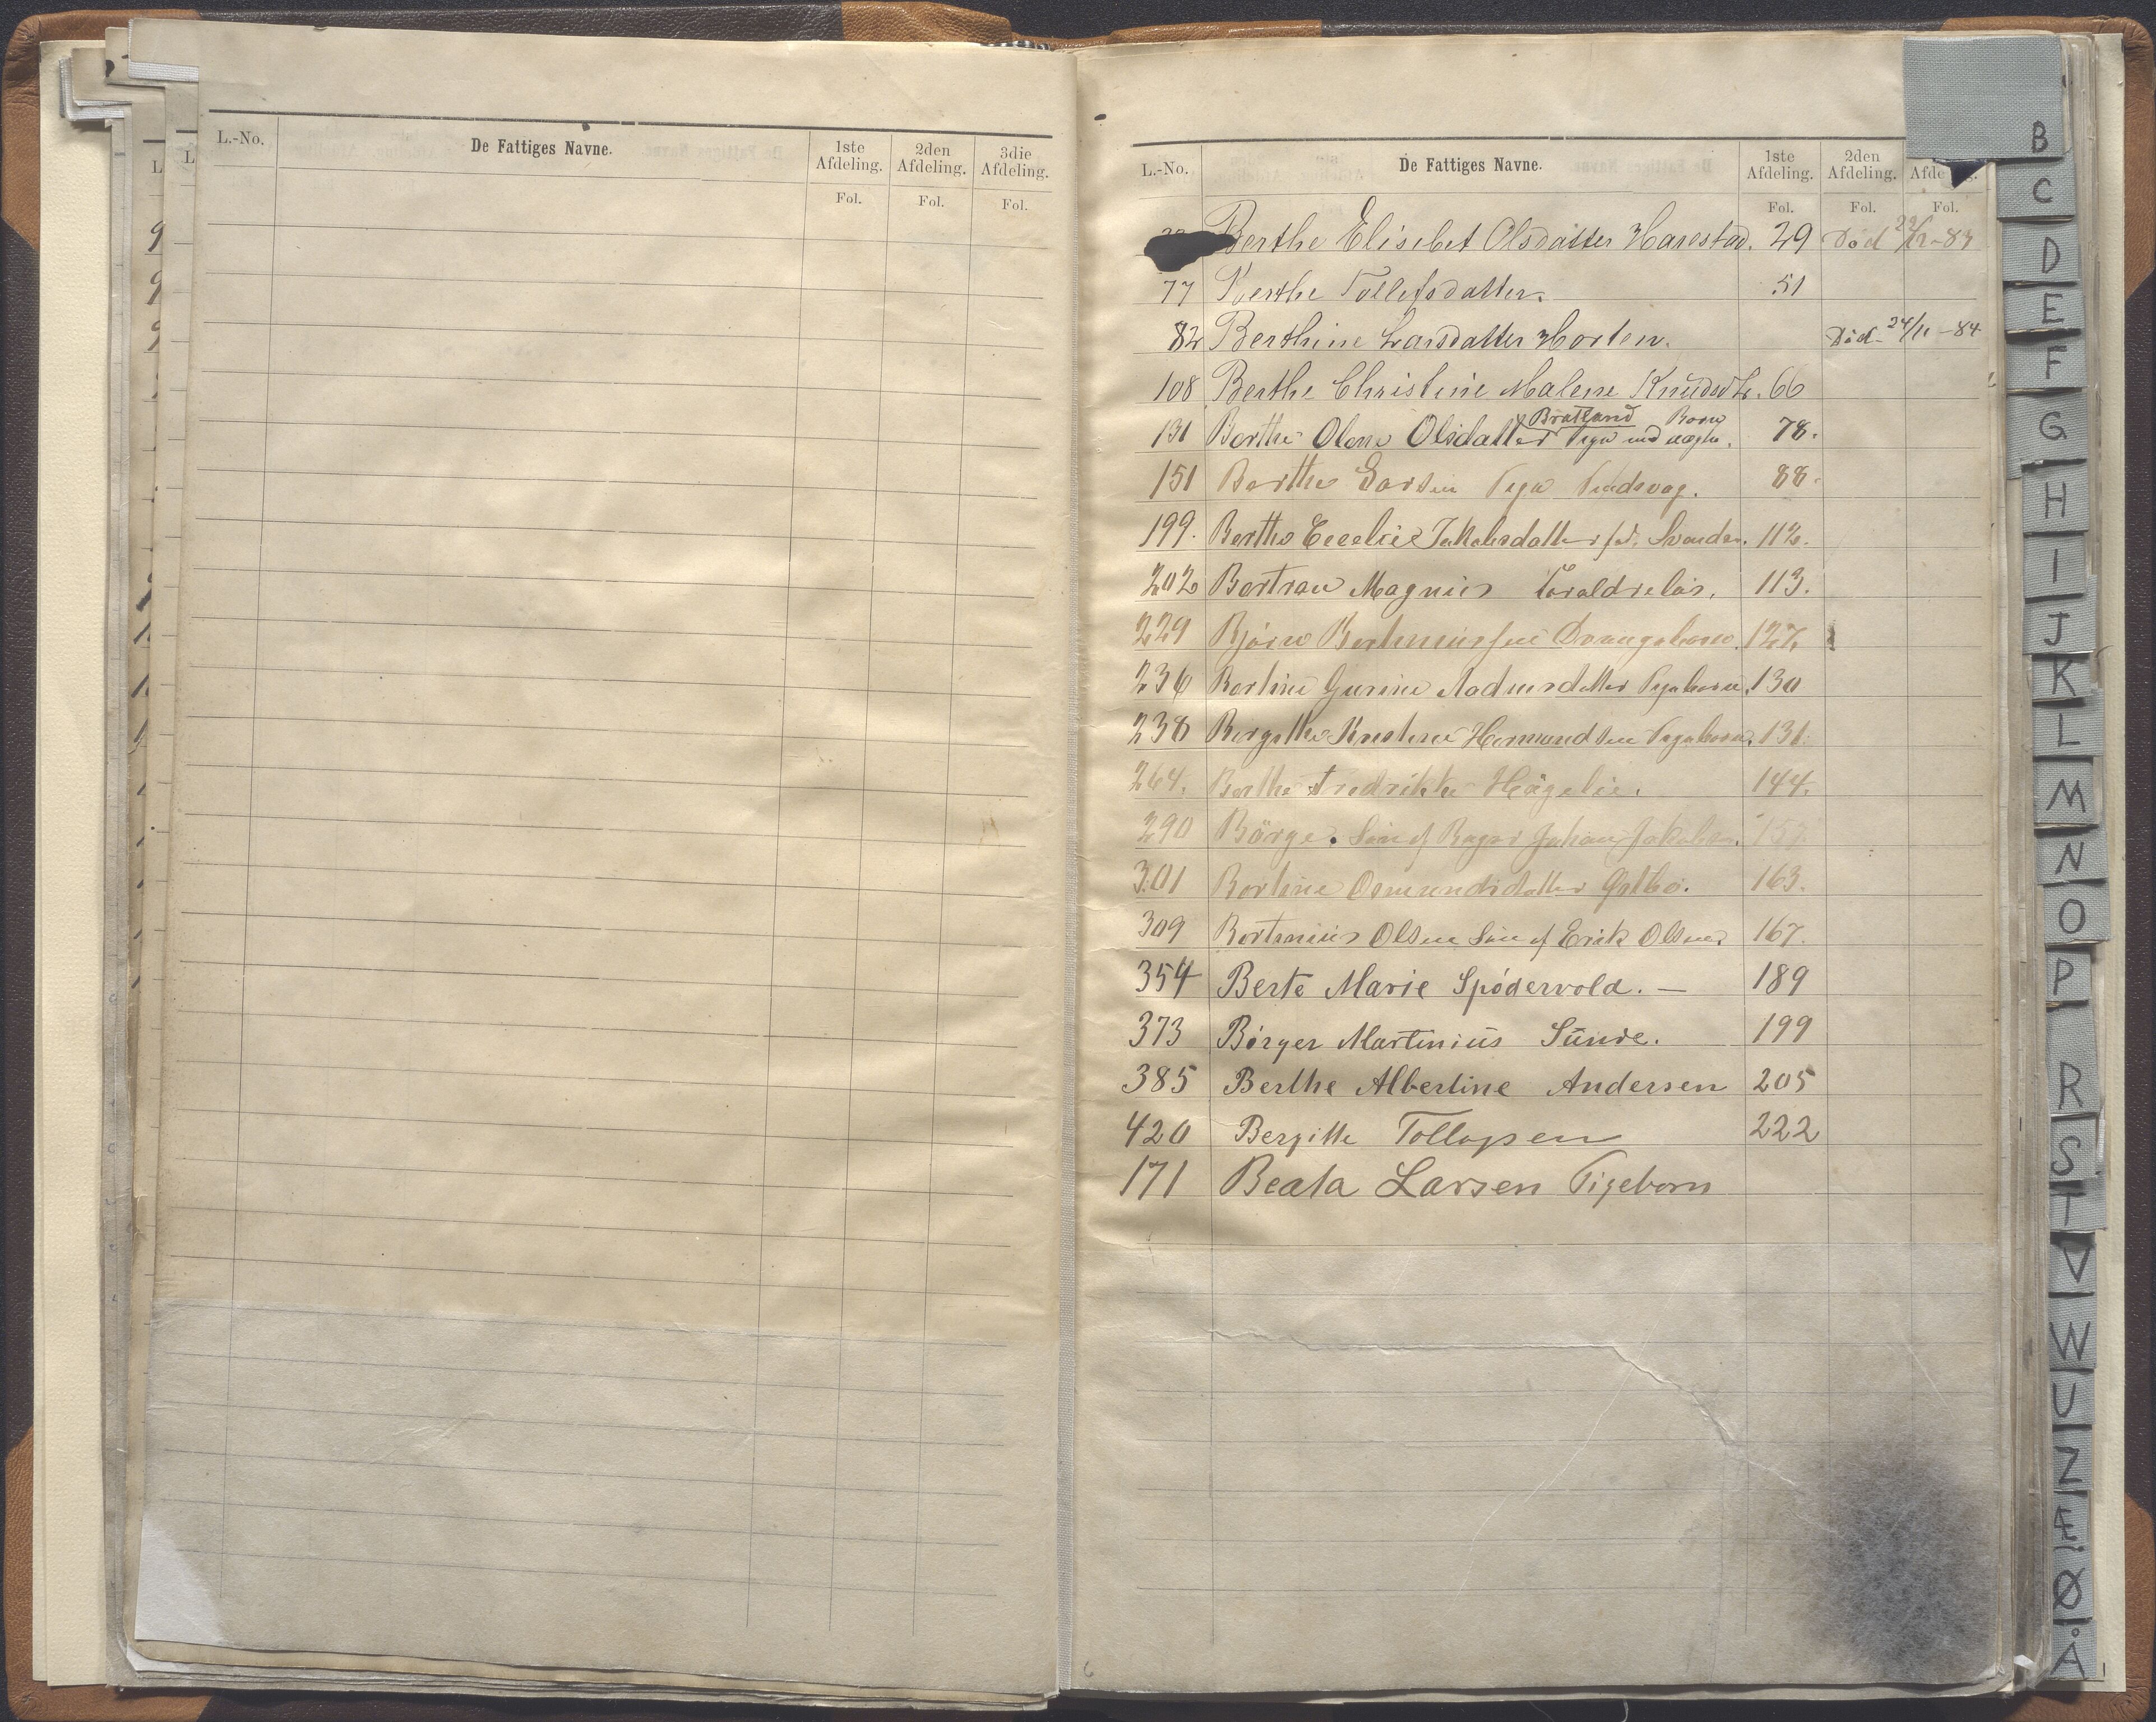 L.-No. De Fattiges Navne. 1ste Afdeling. 2den Afdeling. 3die Afdeling.
Fol. Fol. Fol.
L.-No. De Fattiges Navne. 1ste Afdeling. 2den Afdeling. Afde
Fol. Fol. Fol.
Berthe Elisebet Olsdatter Harestad. 29 Död
77 Berthe Tollefsdatter. 51
82 Berthine Larsdatter Horten. Död 24/11-84
108 Berthe Christine Malene Knudsdtr. 66
Bratland Born
131 Berthe Olene Olsdatter Pige 78.
151 Berthe Larsen Pige 88.
199. Berthe Cecelie Jakobsdatter 112.
202 Bertran Magnus foraldrelös. 113.
229 Björn 127
236 Bertine Gurine Pigebarn. 130
238 Bergithe Hermundsen Pigebarn. 131.
264. Berthe Fredrikke Högelie. 144.
290 Börge. Sön af Johan Jakobsen.
301 Bertine Osmundsdatter Østbö. 163.
309 Bertinius Olsen Sön af Erik Olsen 167.
354 Berte Marie Spödervold. — 189
373 Börger Martinius Sunde. 199
385 Berthe Albertine Andersen 205
420 Bergitte Tollagsen 222
171 Beata Larsen Pigebarn
B
C
D
E
F
G
H
I
J
K
L
M
N
O
P
R
S
T
V
W
U
Z
Æ
Ø
Å